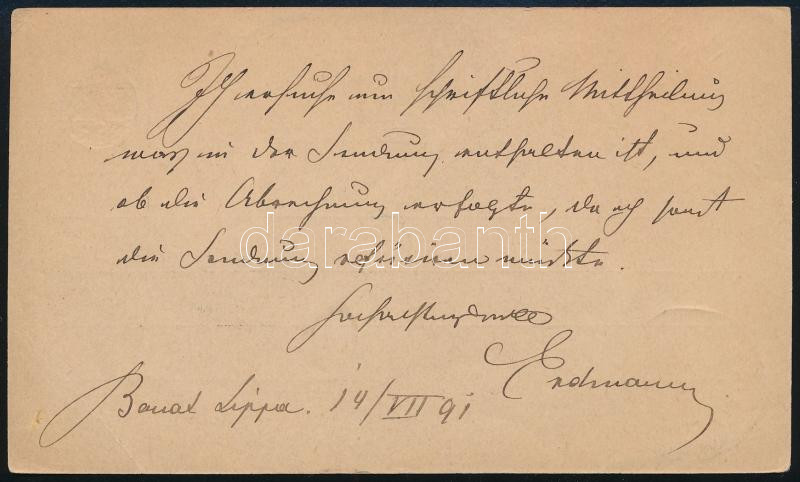 Ich ersuche um schriftliche Mittheilung
was in der Sendung enthalten ist, und
ob die Abrechnung erfolgte, da ich sonst
die Sendung refüsiren müßte.
darabanth
Hochachtungsvoll
Erdmann
Banat Lippa. 14/VII 91